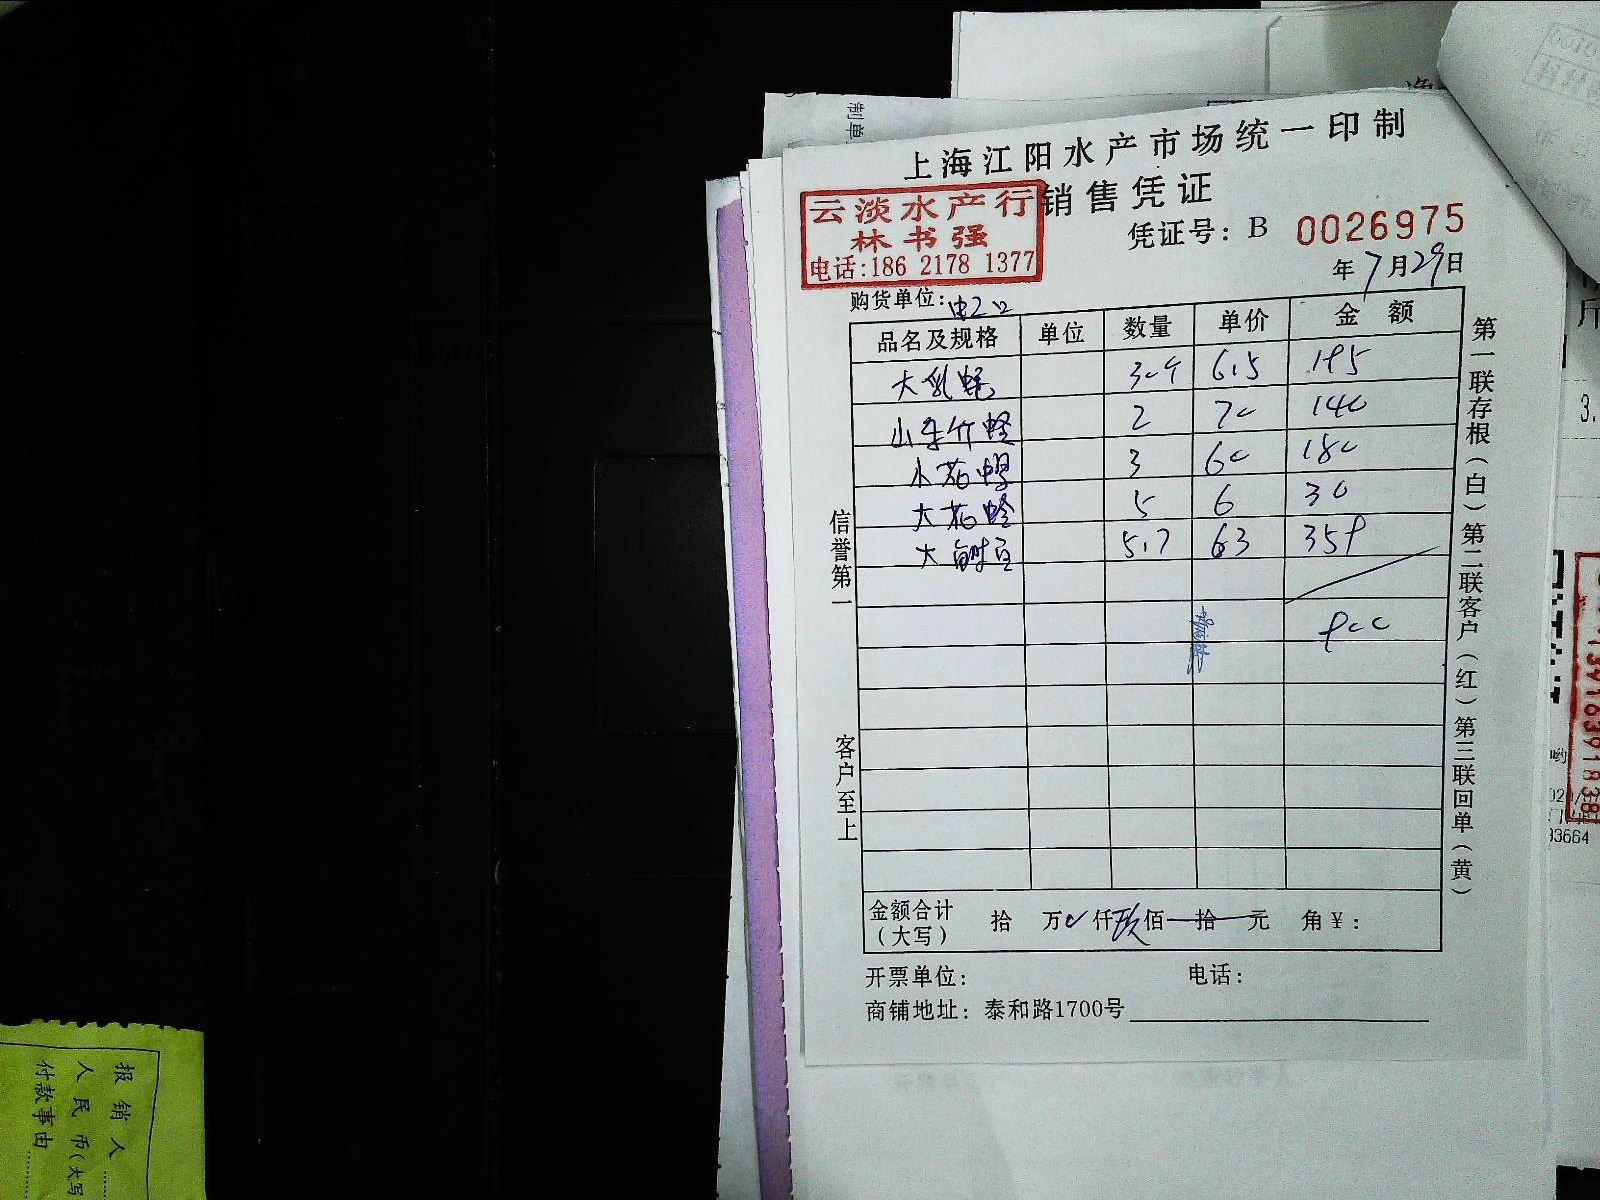 上海江阳水产市场统一印制
销售凭证
云淡水产行
林书强
电话:186 2178 1377
凭证号: B 0026975
年7月29日
购货单位:
品名及规格 单位 数量 单价 金额
大乳蚝 30个 6.5 195
山东竹蛏 2 70 140
小花螺 3 60 180
大花蛤 5 6 30
大 5.7 63 359
900
金额合计(大写) 拾 万 0 仟 玖 佰 拾 元 角 ¥:
开票单位: 电话:
商铺地址: 泰和路1700号
信誉第一
客户至上
第一联存根(白) 第二联客户(红) 第三联回单(黄)
制单
报销人
人民币(大写
付款事由
13916391838
93664
3.